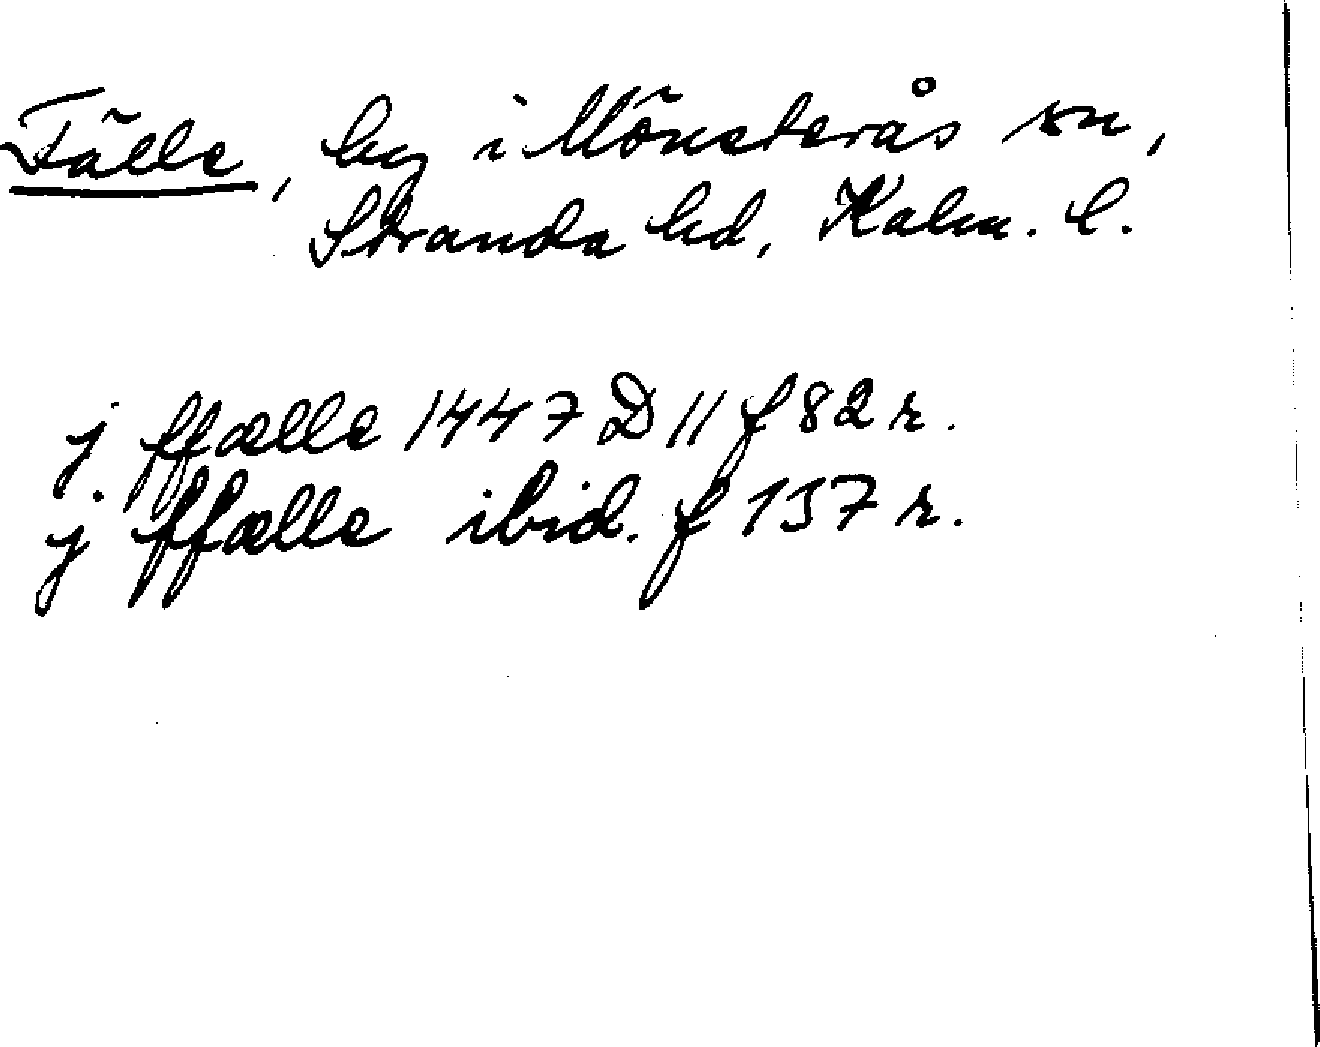 Fälle, by i Mönsterås sn,
Stranda hd, Kalm. l.
j ffælle 1447 D 11 f 82 r.
j ffælle ibid. f 137 r.